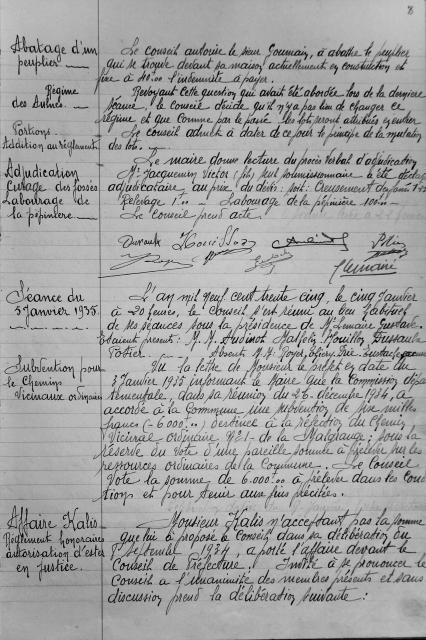 8
Abatage d'un
peuplier
Le conseil autorise le sieur Goumain, à abattre le peuplier
qui se trouve devant sa maison actuellement en construction et
fixe à 40.00 l'indemnité à payer.
Régime
des Aulnes.
Revoyant cette question qui avait été abordée lors de la dernière
séance, le Conseil décide qu'il n'y a pas lieu de changer ce
régime et que comme par le passé les lots seront attribués en entier
Portions
Addition au réglement
Le Conseil admet à dater de ce jour le principe de la mutation
des lots.
Adjudication
Curage des fossés
Labourage de
la pépinière
Le maire donne lecture du procès verbal d'adjudication
Mr Jacquemin Victor (fils) seul soumissionnaire a été déclaré
adjudicataire au prix du devis: soit:
Labourage de la pépinière 100.00
Le Conseil prend acte.
Lemaire
Séance du
5 Janvier 1935.
L'an mil neuf cent trente cinq, le cinq Janvier
à 20 heures, le Conseil s'est réuni au lieu habituel
de ses séances sous la présidence de Mr Lemaire Gustave.
Etaient présents: M.M.
Absents M.M.
Subvention pour
le Chemins
Vicinaux ordinaires
Vu la lettre de Monsieur le préfet en date du
3 Janvier 1935 informant le Maire que la Commission dépar
tementale, dans sa réunion du 26 décembre 1934, a
accordé à la Commune une subvention de six milles
francs (-6000.00) destinée à la réfection du Chemin
Vicinal ordinaire N°1 de la Malgrange: sous la
réserve du vote d'une pareille somme à prélever sur les
ressources ordinaires de la Commune. Le Conseil
Vote la somme de 6.000.00 à prélever dans les condi
tions et pour servir aux fins précitées.
Affaire Kalis
Réglement honoraires
autorisation d'ester
en justice.
Monsieur Kalis n'acceptant pas la somme
que lui a proposé le Conseil dans sa délibération du
Septembre 1934, a porté l'affaire devant le
Conseil de Préfecture. Invité à se prononcer le
Conseil à l'unanimité des membres présents et sans
discussion prend la délibération suivante: